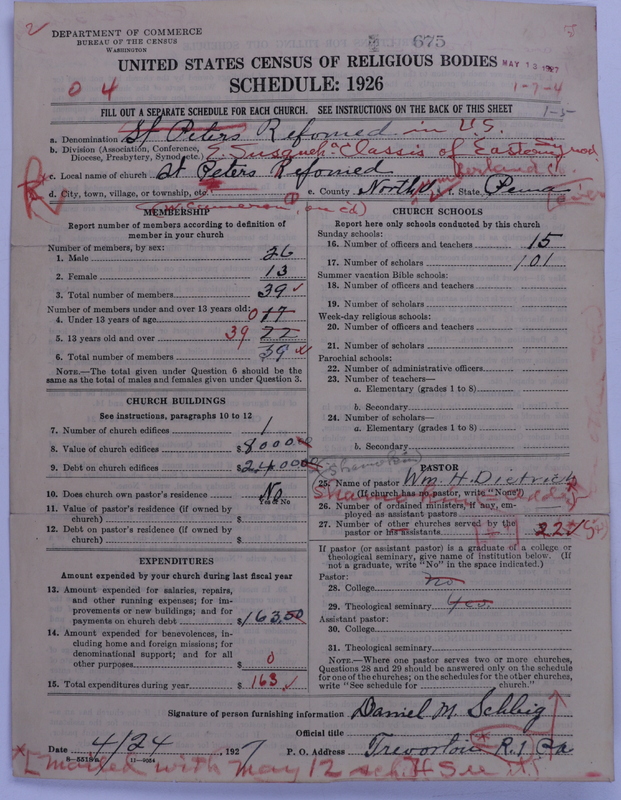 2
DEPARTMENT OF COMMERCE
BUREAU OF THE CENSUS
WASHINGTON
675
UNITED STATES CENSUS OF RELIGIOUS BODIES
MAY 13 1927
SCHEDULE: 1926
0 4
1-7-4
FILL OUT A SEPARATE SCHEDULE FOR EACH CHURCH. SEE INSTRUCTIONS ON THE BACK OF THIS SHEET
1-5
a. Denomination St Peters Refomed in U.S.
b. Division (Association, Conference, Diocese, Presbytery, Synod, etc.) E. Susqueh a Classis of Eastern Synod
c. Local name of church St Peters Refomed
d. City, town, village, or township, etc.
e. County Northumberland Co. f. State Penna
(W Cameron
over
MEMBERSHIP
Report number of members according to definition of member in your church
Number of members, by sex:
1. Male 26
2. Female 13
3. Total number of members 39
Number of members under and over 13 years old:
4. Under 13 years of age 0 17
5. 13 years old and over 39 22
6. Total number of members 39
NOTE.—The total given under Question 6 should be same as the total of males and females given under Question 3.
CHURCH BUILDINGS
See instructions, paragraphs 10 to 12
7. Number of church edifices 1
8. Value of church edifices $8000.00
9. Debt on church edifices $2400.00
10. Does church own pastor's residence No
Yes or No
11. Value of pastor's residence (if owned by church) $
12. Debt on pastor's residence (if owned by church) $
EXPENDITURES
Amount expended by your church during last fiscal year
13. Amount expended for salaries, repairs, and other running expenses; for improvements or new buildings; and for payments on church debt $163.50
14. Amount expended for benevolences, including home and foreign missions; for denominational support; and for all other purposes $ 0
15. Total expenditures during year $ 163
CHURCH SCHOOLS
Report here only schools conducted by this church
Sunday schools:
16. Number of officers and teachers 15
17. Number of scholars 101
Summer vacation Bible schools:
18. Number of officers and teachers
19. Number of scholars
Week-day religious schools:
20. Number of officers and teachers
21. Number of scholars
Parochial schools:
22. Number of administrative officers
23. Number of teachers—
a. Elementary (grades 1 to 8)
b. Secondary
24. Number of scholars—
a. Elementary (grades 1 to 8)
b. Secondary
(Shamokin)
PASTOR
25. Name of pastor Wm. H. Dietrich
(If church has no pastor, write "None")
26. Number of ordained ministers, if any, employed as assistant pastors
27. Number of other churches served by the pastor or his assistants 22
If pastor (or assistant pastor) is a graduate of a college or theological seminary, give name of institution below. (If not a graduate, write "No" in the space indicated.)
Pastor:
28. College no
29. Theological seminary Yes.
Assistant pastor:
30. College
31. Theological seminary
NOTE.—Where one pastor serves two or more churches, Questions 28 and 29 should be answered only on the schedule for one of the churches; on the schedules for the other churches, write "See schedule for church."
Signature of person furnishing information Daniel M. Schlig
Official title
Date 4/24, 1927
P. O. Address Trevorton R.1 Pa
8—5518 b 11—9054
* [ mailed with May 12 sch.